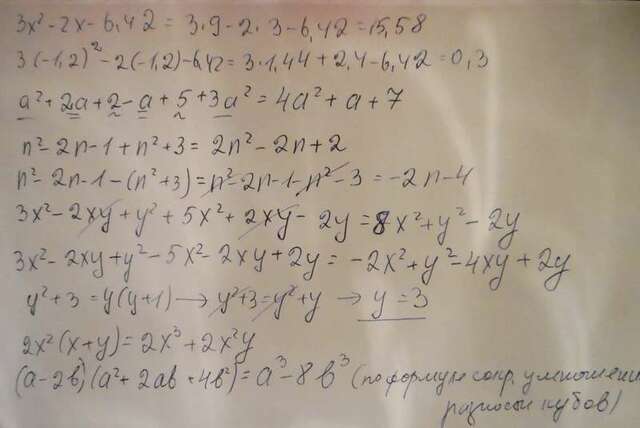 3x² - 2x - 6,42 = 3·9 - 2·3 - 6,42 = 15,58
3(-1,2)² - 2(-1,2) - 6,42 = 3·1,44 + 2,4 - 6,42 = 0,3
a² + 2a + 2 - a + 5 + 3a² = 4a² + a + 7
n² - 2n - 1 + n² + 3 = 2n² - 2n + 2
n² - 2n - 1 - (n² + 3) = n² - 2n - 1 - n² - 3 = -2n - 4
3x² - 2xy + y² + 5x² + 2xy - 2y = 8x² + y² - 2y
3x² - 2xy + y² - 5x² - 2xy + 2y = -2x² + y² - 4xy + 2y
y² + 3 = y(y+1) → y² + 3 = y² + y → y = 3
2x²(x+y) = 2x³ + 2x²y
(a - 2b)(a² + 2ab + 4b²) = a³ - 8b³ (по формуле сокр. умножения
разности кубов)